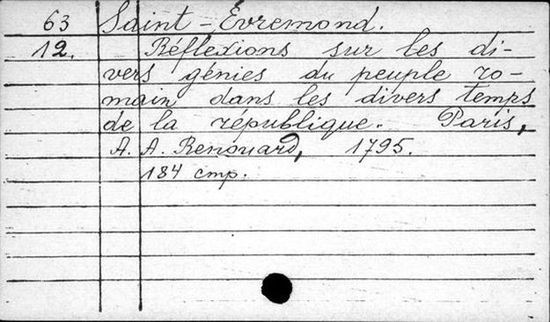 63 Saint-Évremond.
12. Réflexions sur les di-
vers génies du peuple ro-
main dans les divers temps
de la république. Paris,
A. A. Renouard, 1795.
184 стр.